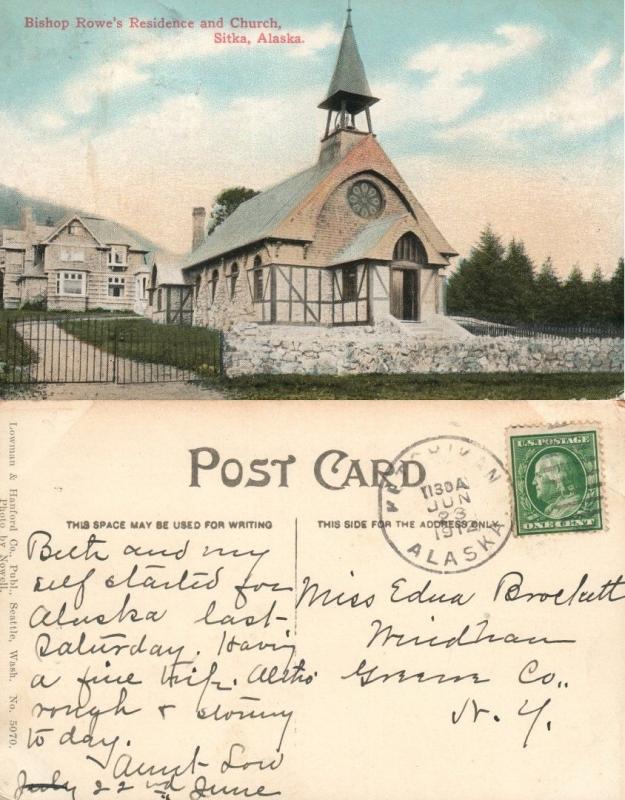 Bishop Rowe's Residence and Church,
Sitka, Alaska.
POST CARD
THIS SPACE MAY BE USED FOR WRITING
THIS SIDE FOR THE ADDRESS ONLY
KETCHIKAN
1130A
JUN
23
1912
ALASKA
U.S. POSTAGE
ONE CENT
Beth and my
self started for
Alaska last
Saturday. Having
a fine trip. Altho
rough & stormy
to day.
Aunt Lou
July 22nd June
Miss Edna Brockett
Windham
Greene Co.,
N.Y.
Lowman & Hanford Co., Publ., Seattle, Wash. No. 5070.
Photo by Nowell.